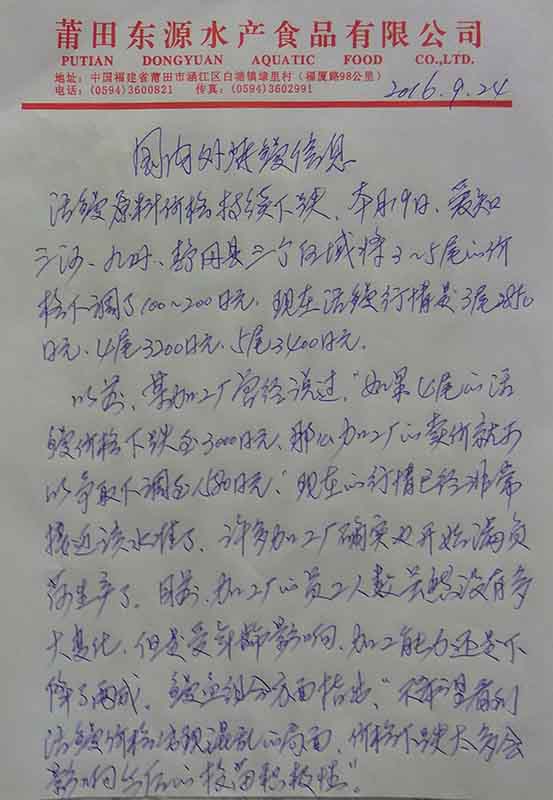 莆田东源水产食品有限公司
PUTIAN DONGYUAN AQUATIC FOOD CO.,LTD.
地址：中国福建省莆田市涵江区白塘镇埭里村（福厦路98公里）
电话：(0594)3600821 传真：(0594)3602991
2016.9.24
国内外烤鳗信息
活鳗原料价格持续下跌，本月19日、爱知
三河、九州、静冈县三个区域将3～5尾的价
格下调了100～200日元，现在活鳗行情是3尾2850
日元、4尾3200日元、5尾3400日元。
以前，某加工厂曾经说过，“如果4尾的活
鳗价格下跌至3000日元，那么加工厂的卖价就可
以争取下调至1580日元”，现在的行情已经非常
接近该水准了，许多加工厂确实也开始满负
荷生产了，目前，加工厂的员工人数虽然没有多
大变化，但是受年龄影响，加工能力还是下
降了两成。鳗鱼组合方面指出，“不希望看到
活鳗价格出现混乱的局面，价格下跌太多会
影响今后的投苗积极性”。